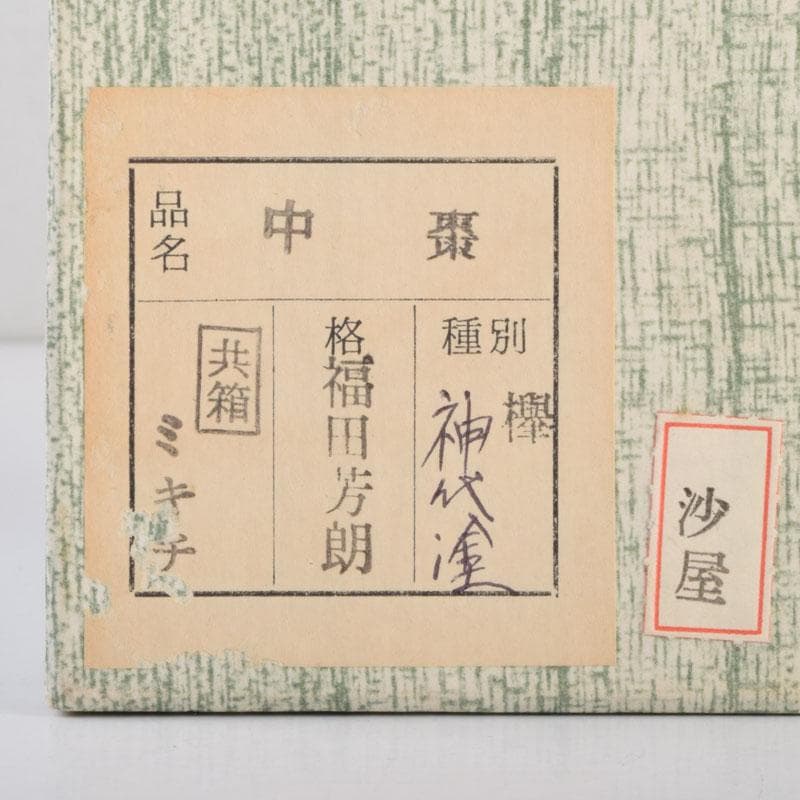 品名
中棗
種別
欅
神代塗
格
福田芳朗
共箱
ミキチ
沙屋